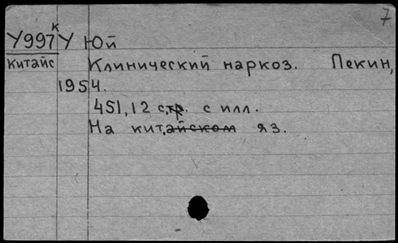 7
У997к У Юй
Китайс Клинический наркоз. Пекин,
1954.
451,12 стр. с илл.
На китайском яз.